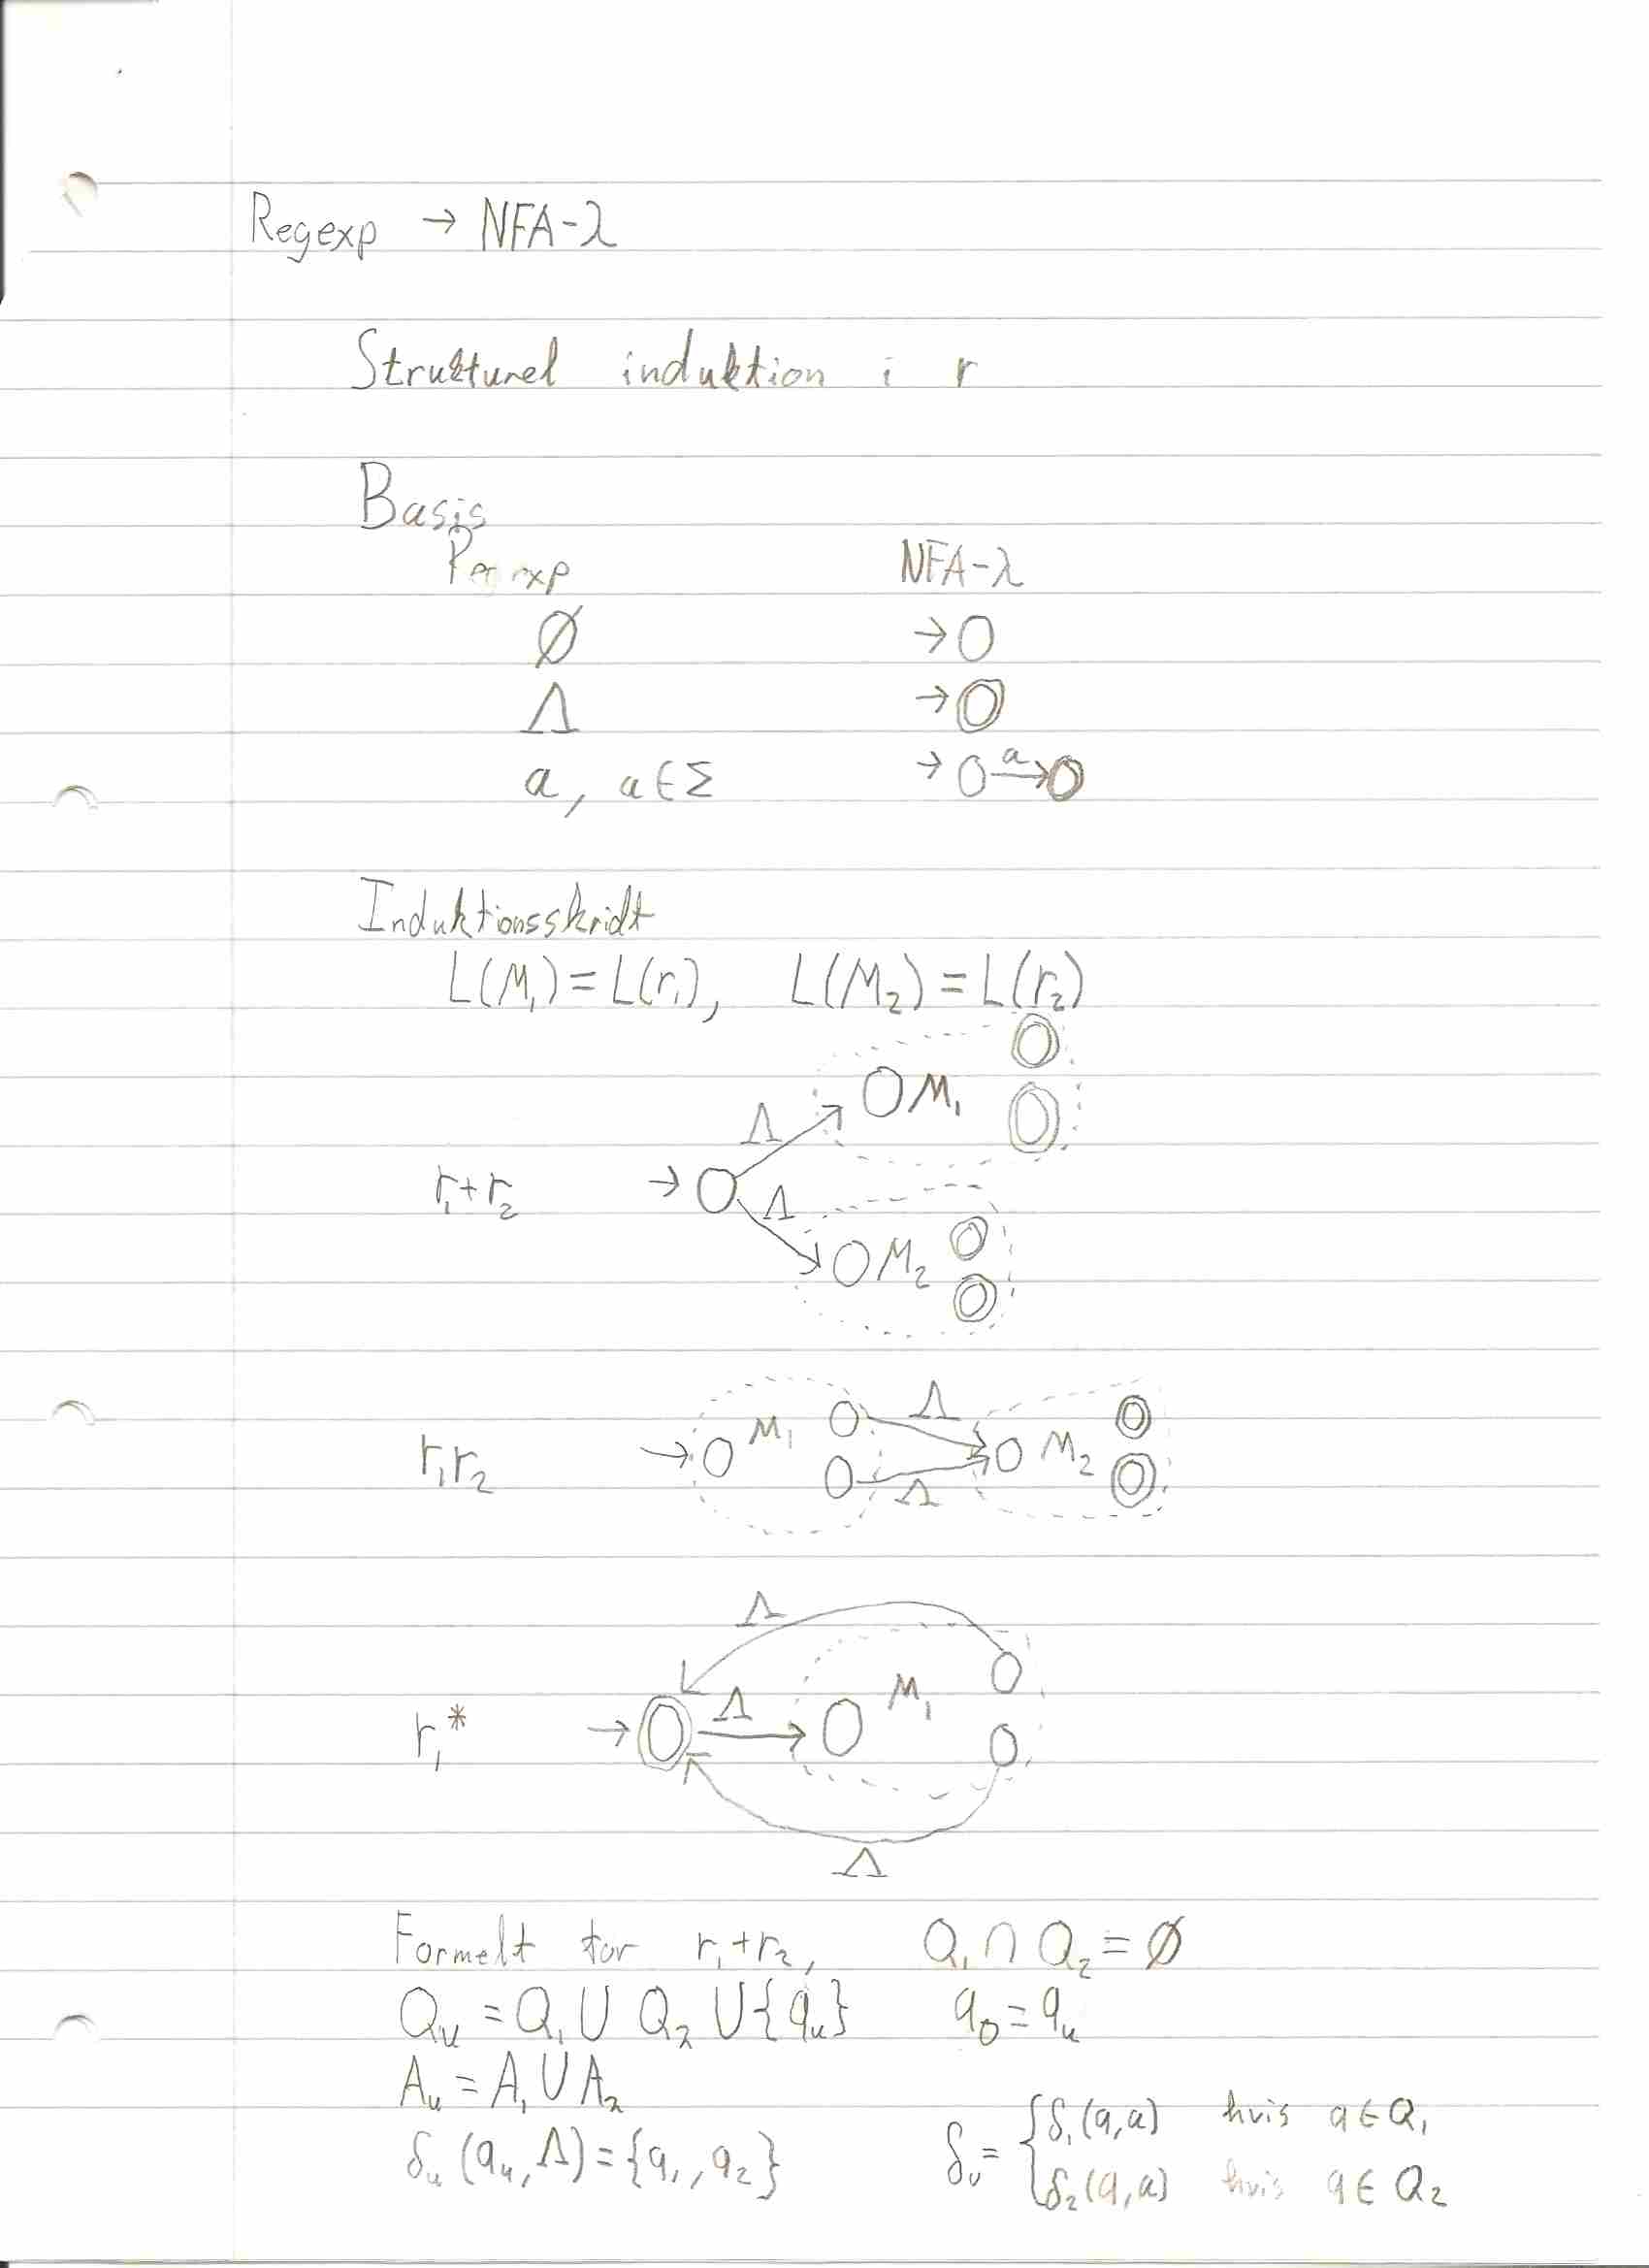 Regexp → NFA-λ
Strukturel induktion i r
Basis
Regexp NFA-λ
∅ →O
Λ →O
a, a∈Σ →O a→O
Induktionsskridt
L(M₁)=L(r₁), L(M₂)=L(r₂)
M₁
Λ
r₁+r₂ →
Λ
M₂
Λ
r₁r₂ → M₁ M₂
Λ
Λ
r₁* → Λ M₁
Λ
Formelt for r₁+r₂, Q₁∩Q₂=∅
Qᵤ=Q₁∪Q₂∪{qᵤ} q₀=qᵤ
Aᵤ=A₁∪A₂
δᵤ(qᵤ,Λ)={q₁,q₂} δᵤ={δ₁(q,a) hvis q∈Q₁
δ₂(q,a) hvis q∈Q₂